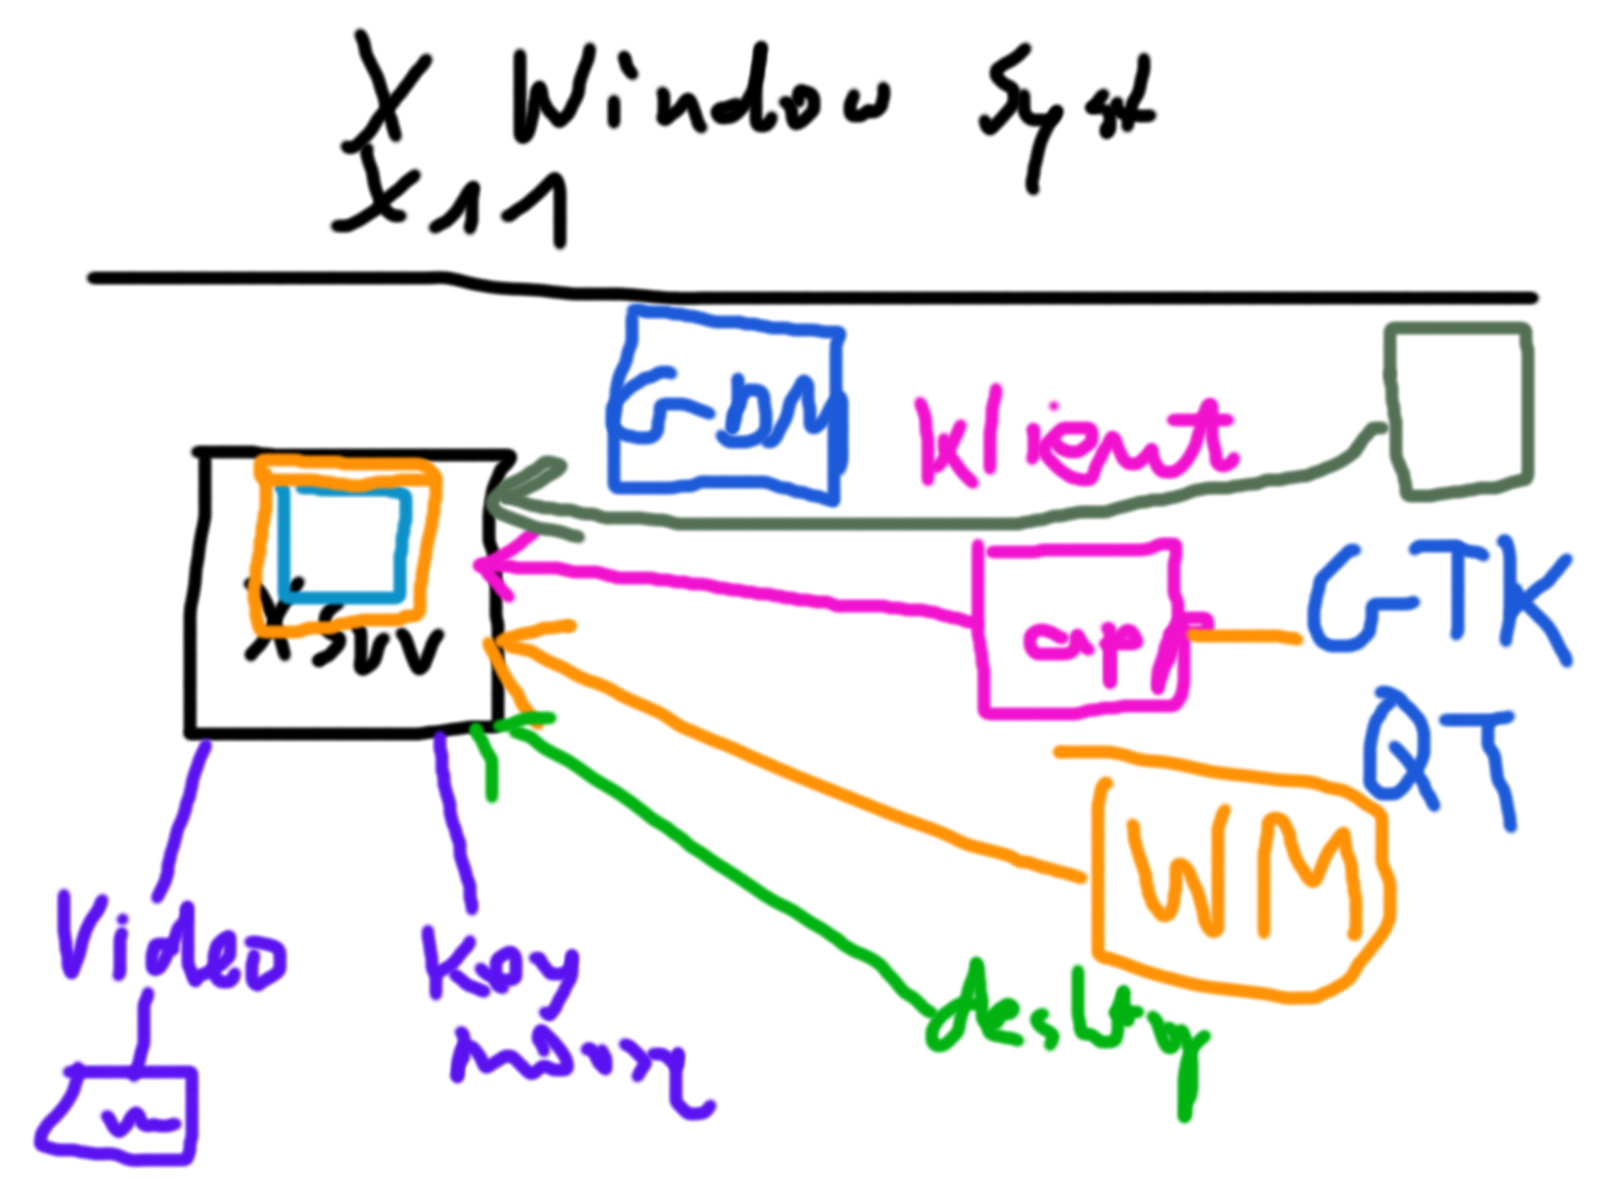 X Window Syst
X11
GDM
Klient
X Serv
app
GTK
QT
WM
Video
Key
desktop